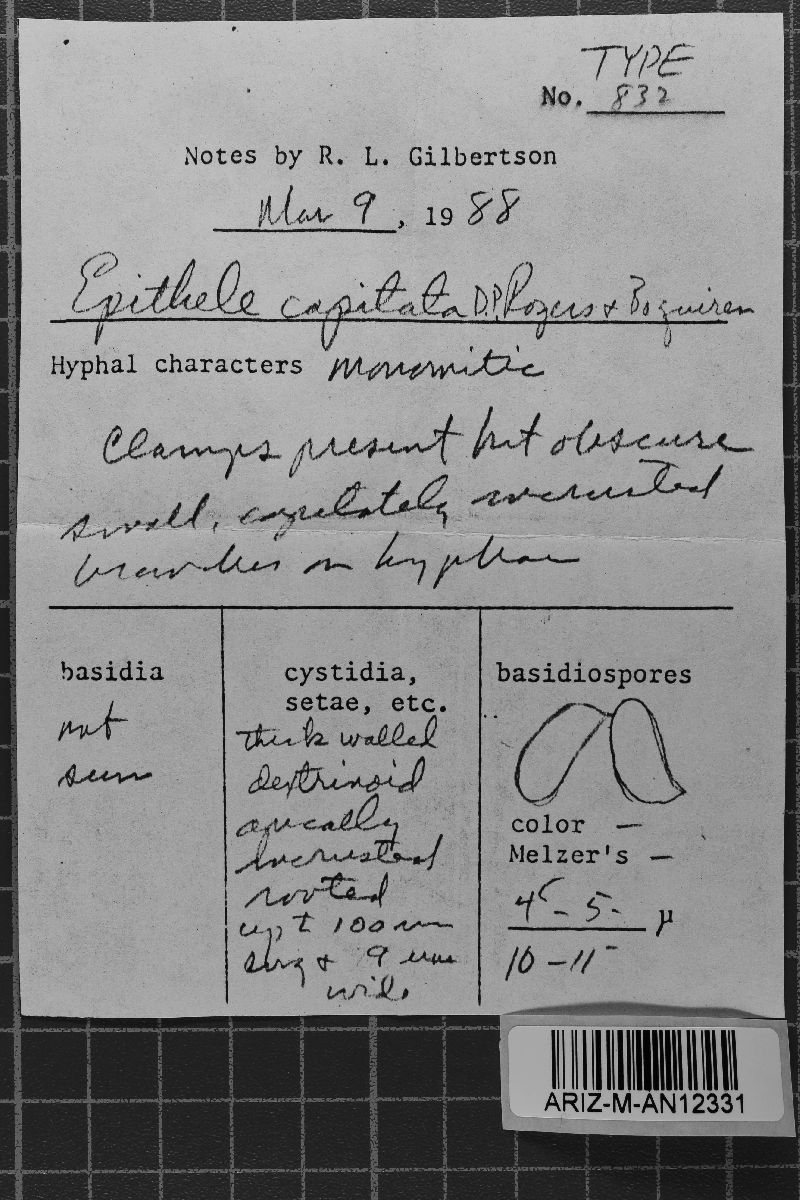 TYPE
No. 832
Notes by R. L. Gilbertson
Mar 9, 1988
Epithele capitata D.P. Rogers & Boquiren
Hyphal characters monomitic
Clamps present but obscure
small, capitately incrusted
branches on hyphae
basidia
not
seen
cystidia,
setae, etc.
thick walled
dextrinoid
apically
incrusted
rooted
up to 100 um
long & 9 um
wide
basidiospores
color —
Melzer's —
4⁵ - 5- µ
10 - 11
ARIZ-M-AN12331